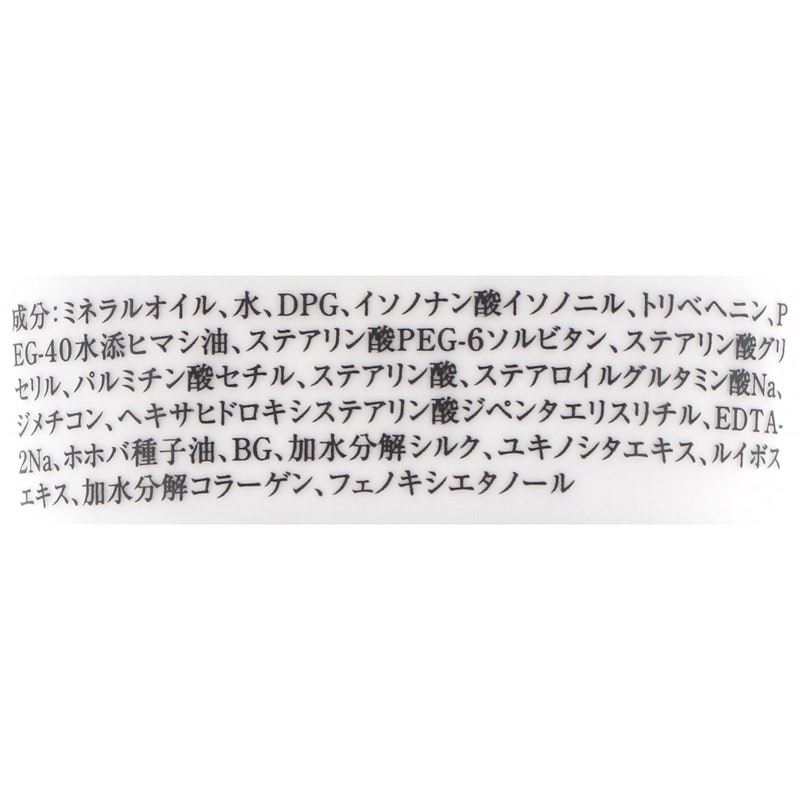 成分：ミネラルオイル、水、DPG、イソノナン酸イソノニル、トリベヘニン、P
EG-40水添ヒマシ油、ステアリン酸PEG-6ソルビタン、ステアリン酸グリ
セリル、パルミチン酸セチル、ステアリン酸、ステアロイルグルタミン酸Na、
ジメチコン、ヘキサヒドロキシステアリン酸ジペンタエリスリチル、EDTA-
2Na、ホホバ種子油、BG、加水分解シルク、ユキノシタエキス、ルイボス
エキス、加水分解コラーゲン、フェノキシエタノール